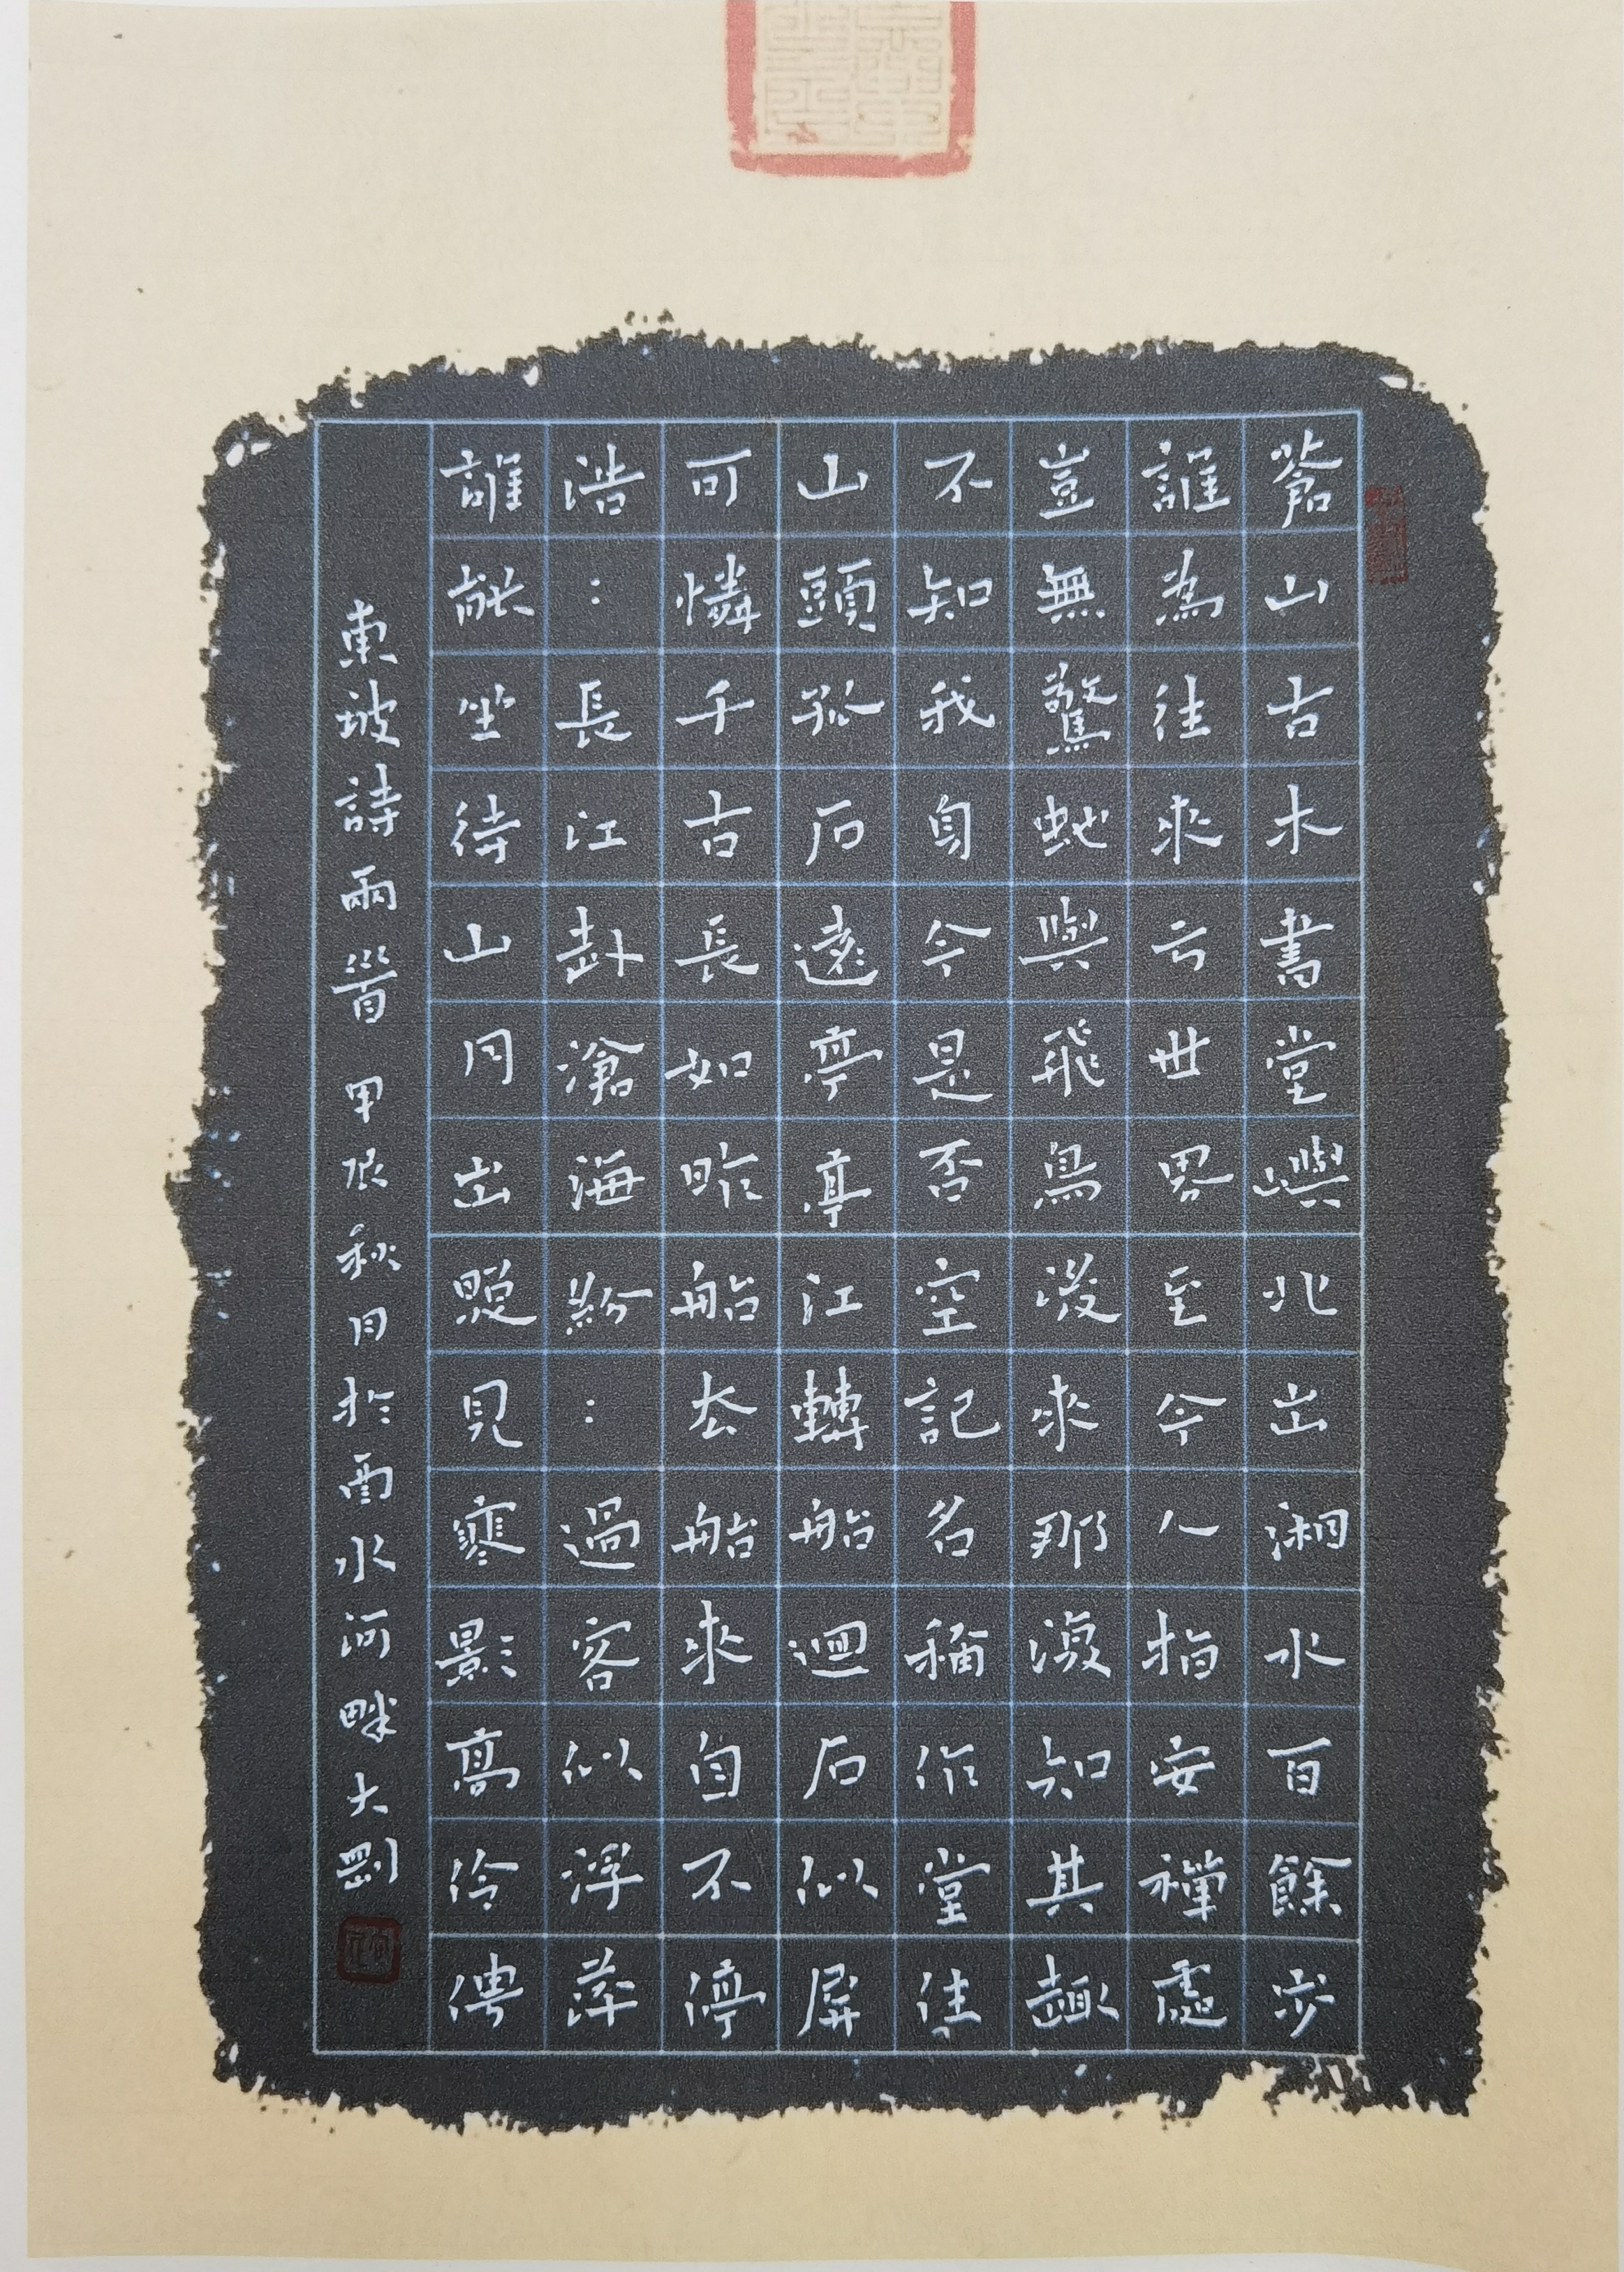 蒼山古木書堂嶼北出湘水百餘步
誰為往來亡世界至今人指安禪處
豈無驚虵與飛鳥後來那復知其趣
不知我身今是否空記名稱作堂住
山頭孤石遠亭亭江轉船迴石似屏
可憐千古長如昨船去船來自不停
浩：長江赴滄海紛：過客似浮萍
誰能坐待山月出照見寒影高伶俜
東坡詩兩首 甲辰秋月於酉水河畔大劉